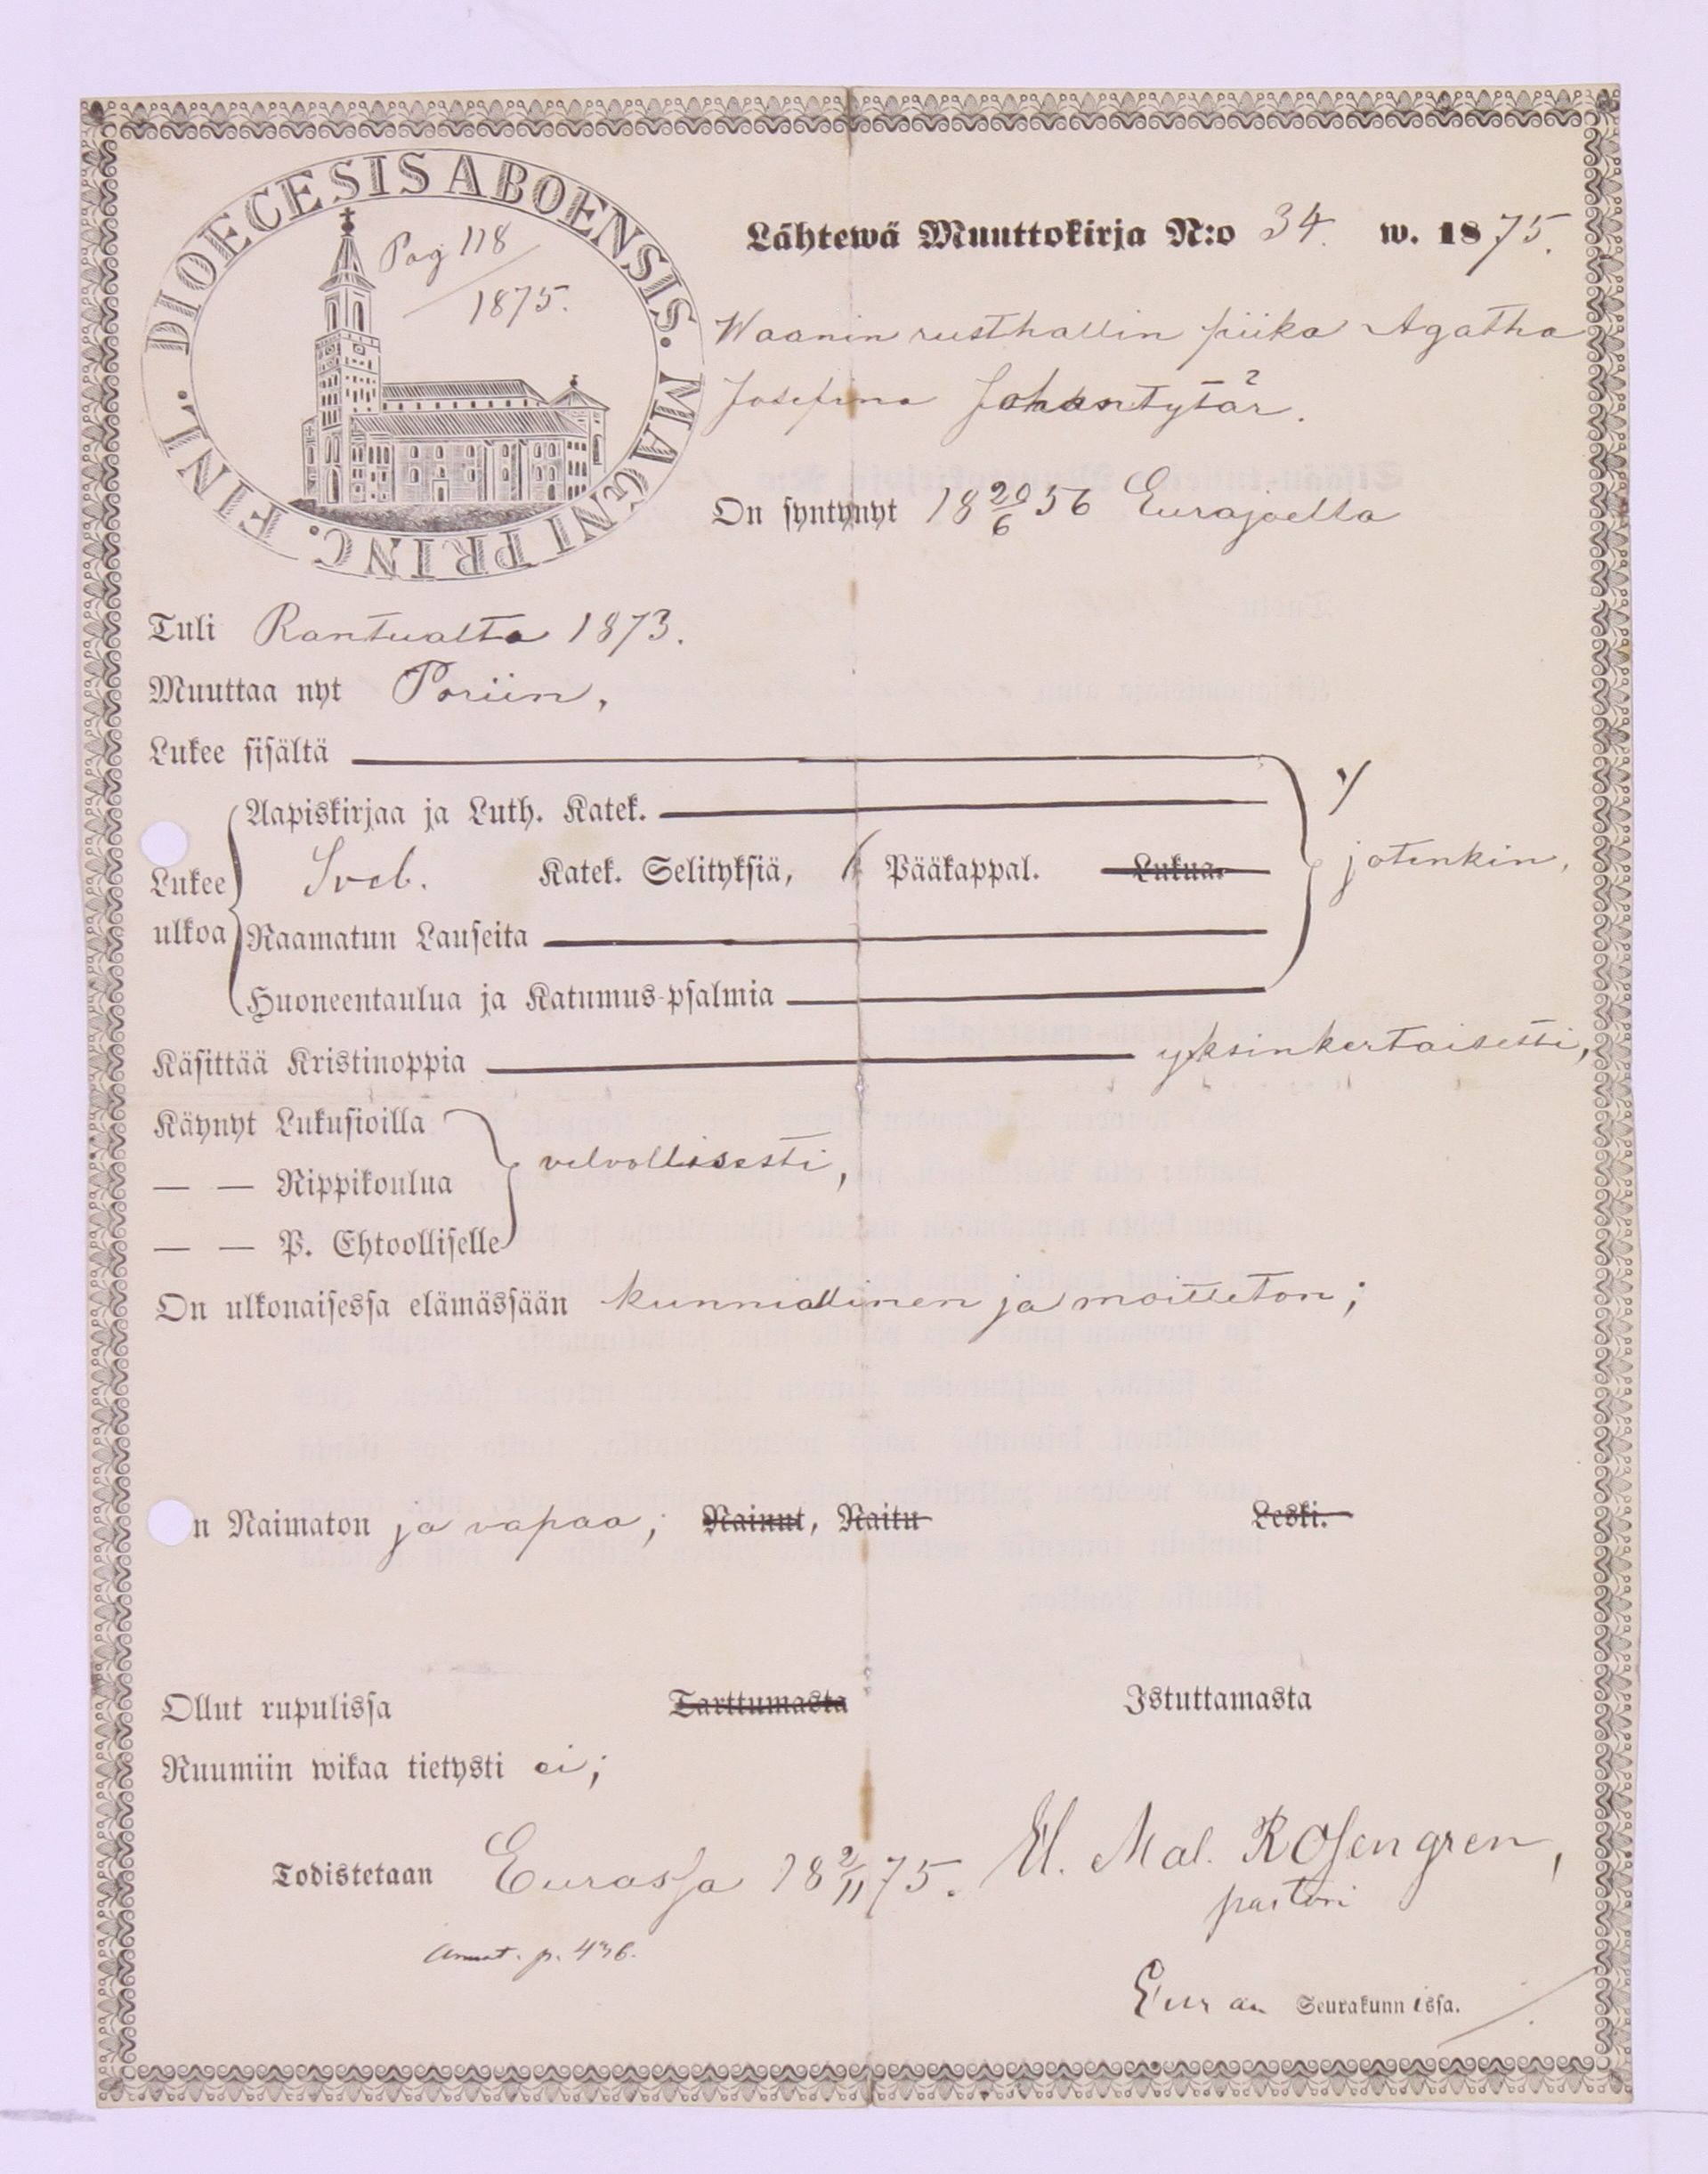 DIOECESIS ABOENSIS. MAGNI PRINC. FINL.
Pag 118
1875.
Lähtewä Muuttokirja N:o 34. w. 1875.
Waanin rusthallin piika Agatha
Josefina Johantytär.
On syntynyt 18 20/6 56 Eurajoella
Tuli Rantualta 1873.
Muuttaa nyt Poriin,
Lukee sisältä
Aapiskirjaa ja Luth. Katek.
Lukee ulkoa
Sveb. Katek. Selityksiä, 6 Pääkappal. Lukua. jotenkin,
Raamatun Lauseita
Huoneentaulua ja Katumus-psalmia
Käsittää Kristinoppia yksinkertaisesti,
Käynyt Lukusioilla
— — Rippikoulua velvollisesti,
— — P. Ehtoolliselle
On ulkonaisessa elämässään kunniallinen ja moitteton;
n Naimaton ja vapaa; Nainut, Naitu Leski.
Ollut rupulissa Tarttumasta Istuttamasta
Ruumiin wikaa tietysti ei;
Todistetaan Eurassa 18 2/11 75. El. Mal. Rosengren,
pastori
Annot. p. 436.
Euran Seurakunnissa.